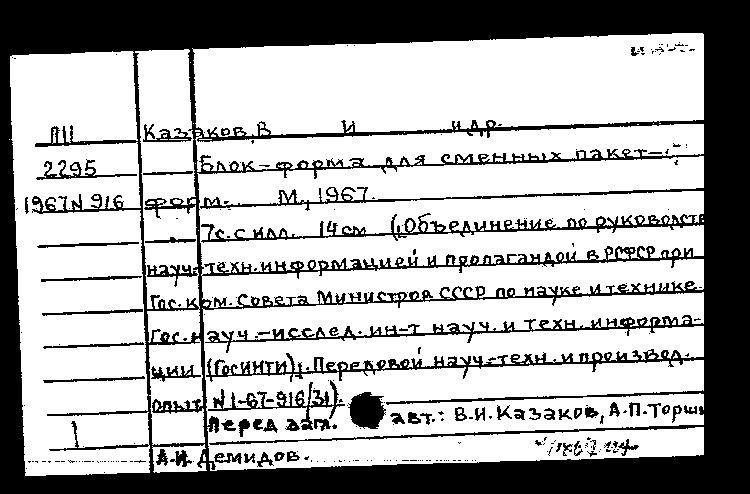 П11 Казаков, В И и др.
2295 Блок-форма для сменных пакет-
1967 N 916 форм. М., 1967.
7с. с илл. 14 см (Объединение по руководств
науч.-техн. информацией и пропагандой в РСФСР при
Гос. ком. Совета Министров СССР по науке и технике.
Гос. науч.-исслед. ин-т науч. и техн. информа-
ции (ГосИНТИ). Передовой науч.-техн. и производ.
опыт N 1-67-916/31).
1 Перед загл. авт.: В.И. Казаков, А.П. Торши
А.И. Демидов.